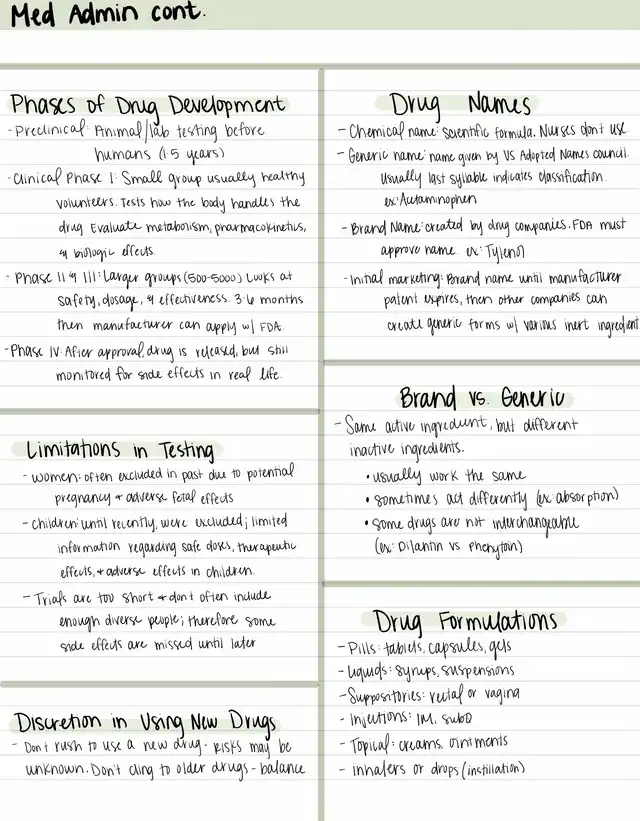 Med Admin cont.
Phases of Drug Development
- Preclinical: Animal/lab testing before
humans (1-5 years)
- Clinical Phase I: Small group usually healthy
volunteers. Tests how the body handles the
drug. Evaluate metabolism, pharmacokinetics,
& biologic effects.
- Phase II & III: Larger groups (500-5000) Looks at
safety, dosage, & effectiveness. 3-6 months
then manufacturer can apply w/ FDA.
- Phase IV: After approval, drug is released, but still
monitored for side effects in real life.
Limitations in Testing
- Women: often excluded in past due to potential
pregnancy & adverse fetal effects
- Children: until recently, were excluded; limited
information regarding safe doses, therapeutic
effects, & adverse effects in children.
- Trials are too short & don't often include
enough diverse people; therefore some
side effects are missed until later
Discretion in Using New Drugs
- Don't rush to use a new drug - risks may be
unknown. Don't cling to older drugs - balance
Drug Names
- Chemical name: Scientific formula. Nurses don't use.
- Generic name: name given by US Adopted Names council.
Usually last syllable indicates classification.
ex: Acetaminophen
- Brand Name: created by drug companies. FDA must
approve name. ex: Tylenol
- Initial marketing: Brand name until manufacturer
patent expires, then other companies can
create generic forms w/ various inert ingredient
Brand vs. Generic
- Same active ingredient, but different
inactive ingredients.
• usually work the same
• sometimes act differently (ex: absorption)
• some drugs are not interchangeable
(ex: Dilantin vs Phenytoin)
Drug Formulations
- Pills: tablets, capsules, gels
- Liquids: syrups, suspensions
- Suppositories: rectal or vagina
- Injections: IM, subQ
- Topical: creams, ointments
- inhalers or drops (instillation)